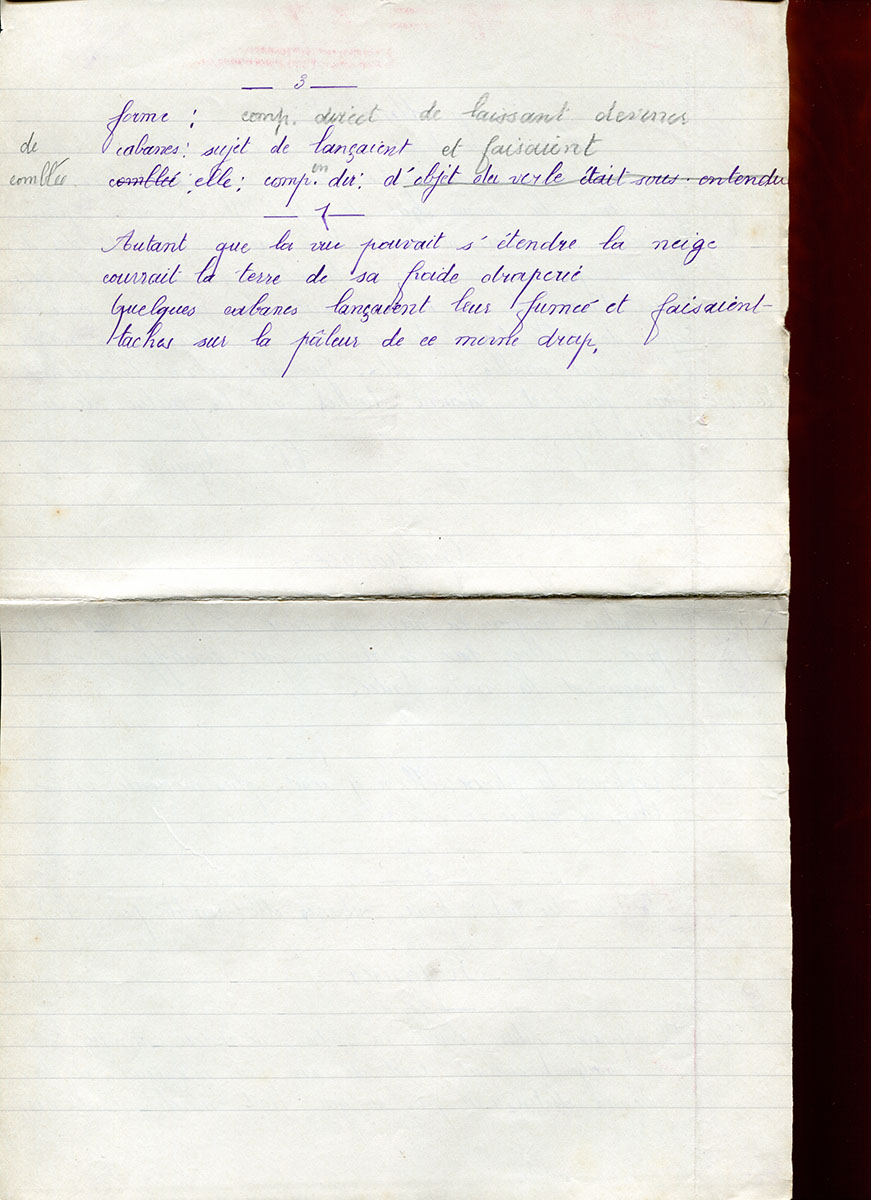 — 3 —
forme : comp. direct de laissant deviner
cabanes: sujet de lançaient et faisaient
de
comblée
comblée elle: comp. en dir: d'objet du verbe était sous-entendu
— 1 —
Autant que la vue pouvait s'étendre la neige
couvrait la terre de sa froide draperie
Quelques cabanes lançaient leur fumée et faisaient
taches sur la pâleur de ce morne drap.